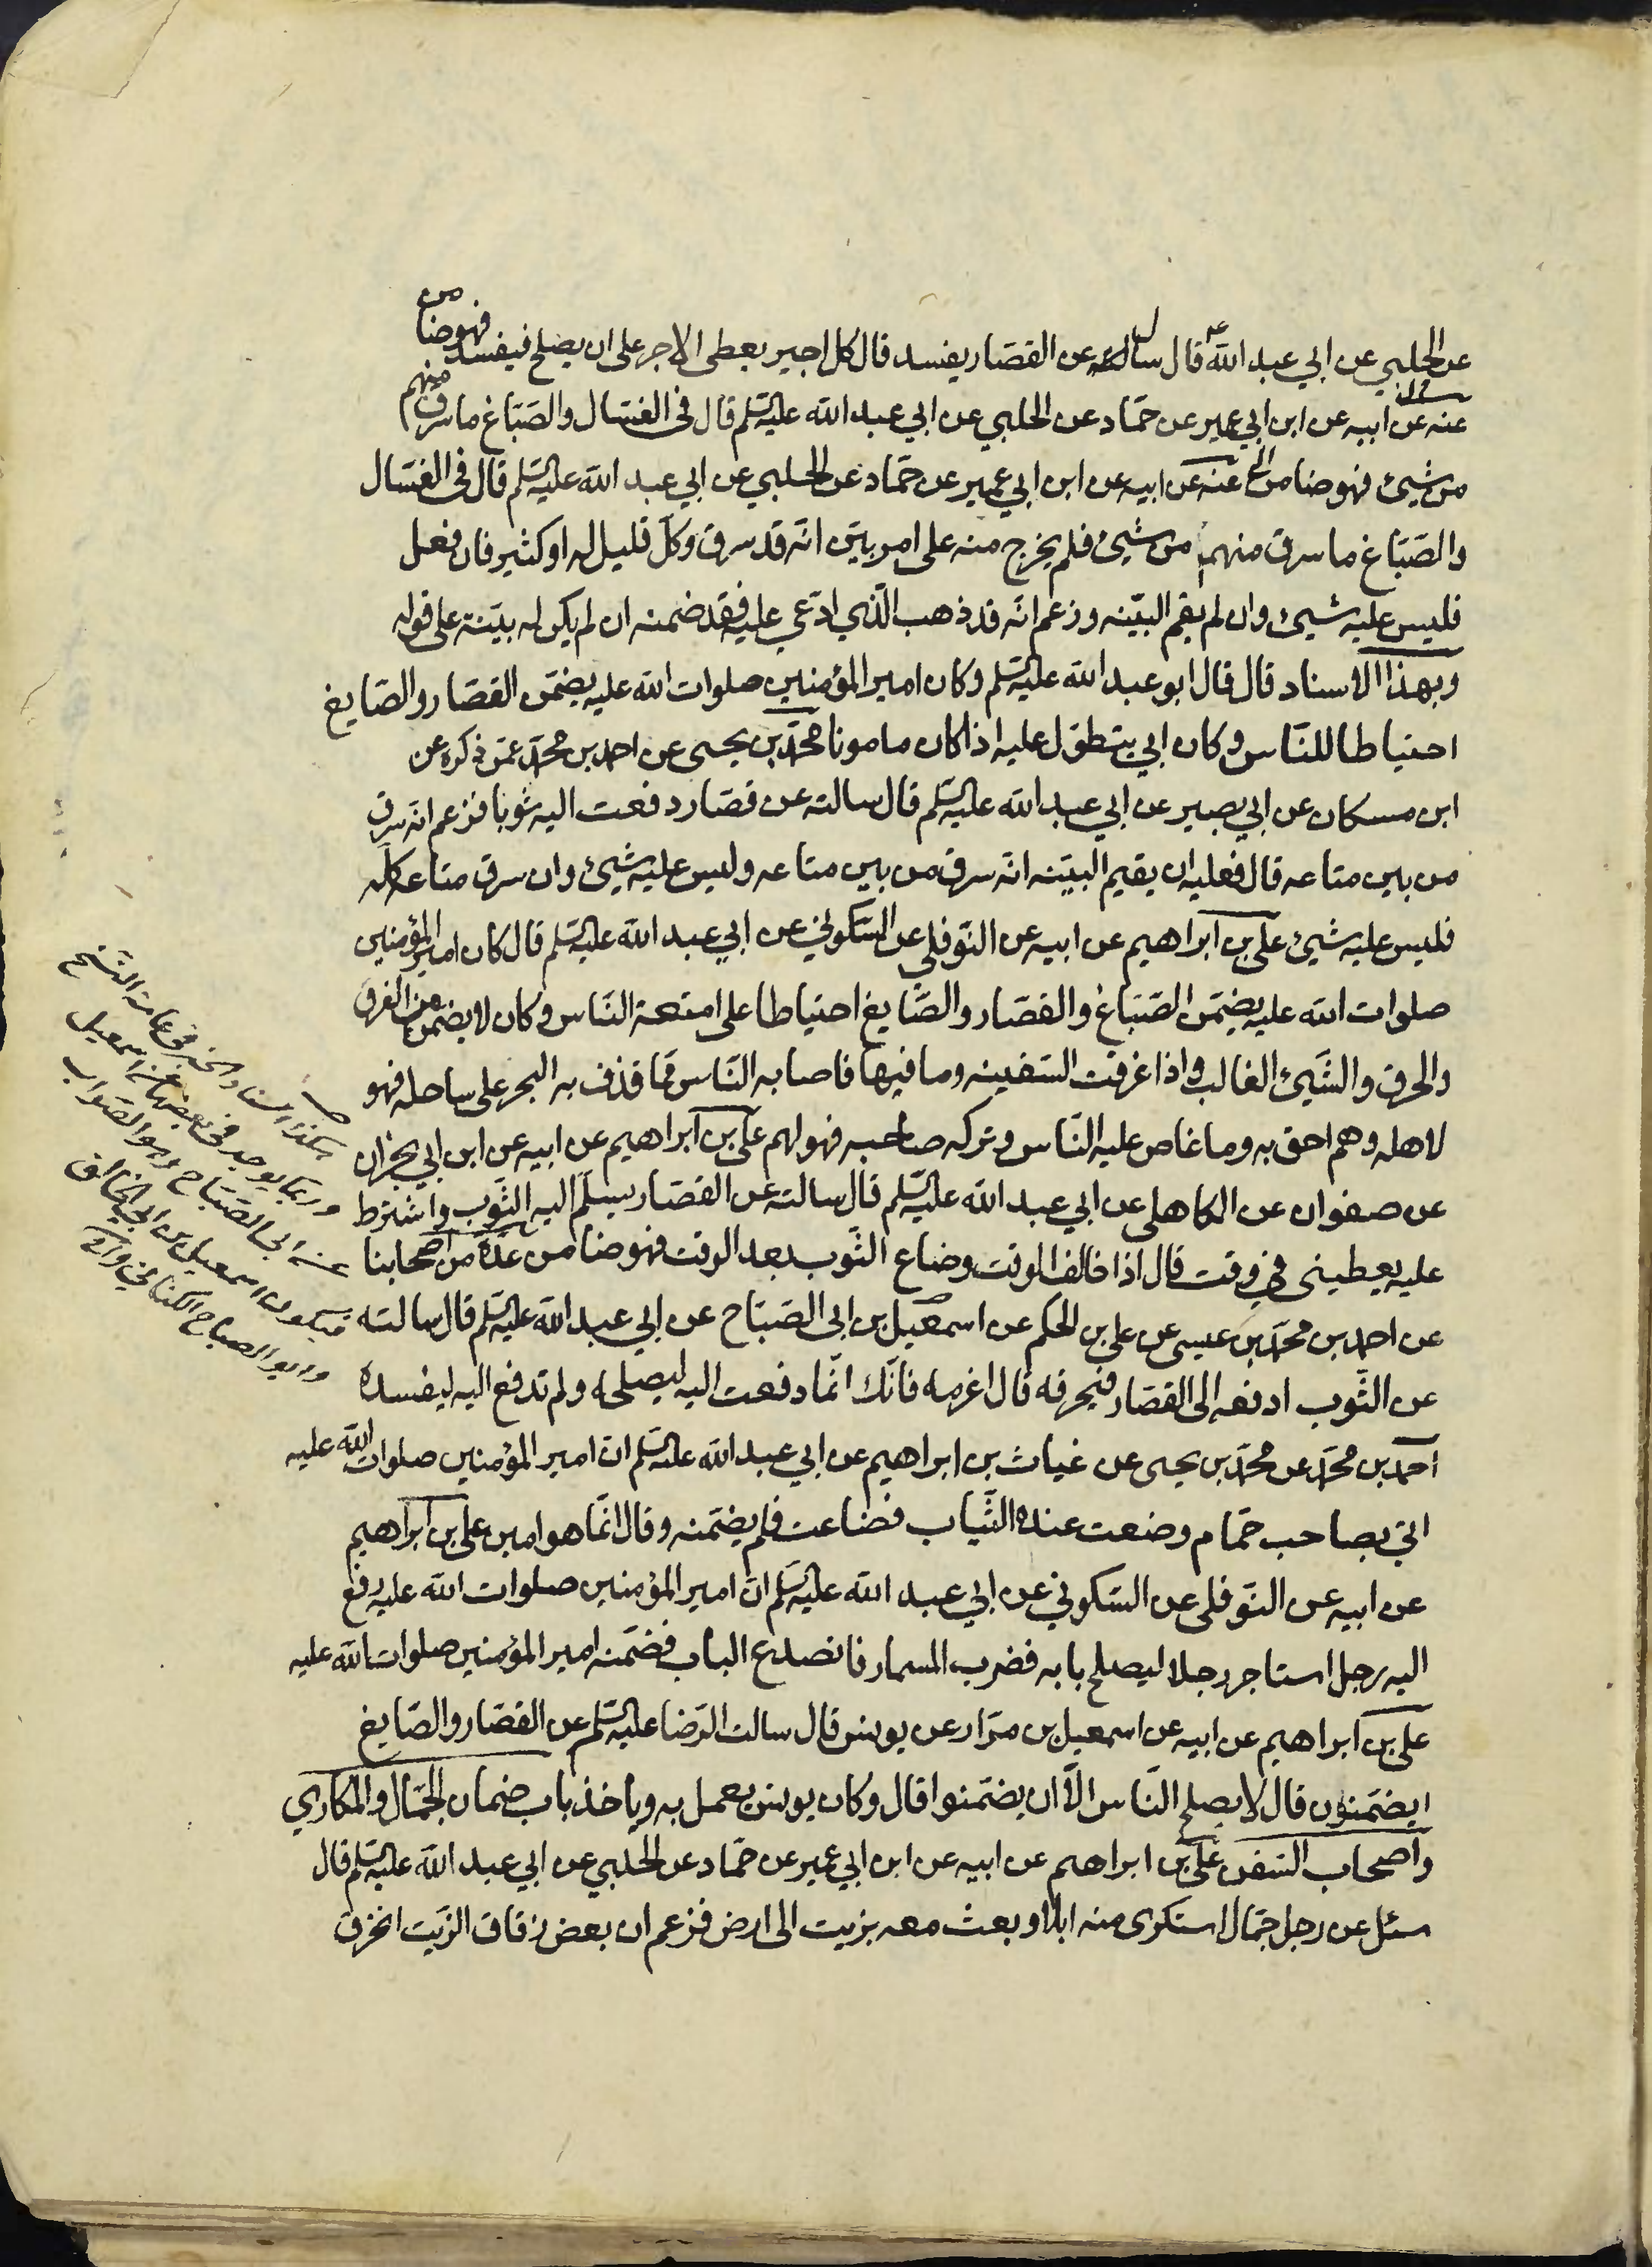 عن الحلبي عن ابي عبد الله ع قال سالته عن القصار يفسد قال كل اجير يعطى الاجر على ان يصلح فيفسد فهو ضامن
عنه عن ابيه عن ابن ابي عمير عن حمّاد عن الحلبي عن ابي عبد الله عليه السّلم قال في الغسّال والصّبّاغ ما سرق منهم
من شيئ فهو ضامن الخ عنه عن ابيه عن ابن ابي عمير عن حمّاد عن الحلبي عن ابي عبد الله عليه السّلم قال في الغسّال
والصّبّاغ ما سرق منهم من شيئ فلم يخرج منه على امر بيّن انّه قد سرق وكلّ قليل له او كثير فان فعل
فليس عليه شيئ وان لم يقم البيّنه وزعم انّه قد ذهب الّذي ادّعي عليه فقد ضمنه ان لم يكن له بيّنة على قوله
وبهذا الاسناد قال قال ابو عبد الله عليه السّلم وكان امير المؤمنين صلوات الله عليه يضمّن القصّار والصّايغ
احتياطا للنّاس وكان ابي يتطوّل عليه اذا كان مامونا محمّد بن يحيى عن احمد بن محمّد عمّن ذكره عن
ابن مسكان عن ابي بصير عن ابي عبد الله عليه السّلم قال سالته عن قصّار دفعت اليه ثوبا فزعم انّه سرق
من بين متاعه قال فعليه ان يقيم البيّنه انّه سرق من بين متاعه وليس عليه شيئ وان سرق متاعه كلّه
فليس عليه شيئ علي بن ابراهيم عن ابيه عن النّوفلي عن السّكوني عن ابي عبد الله عليه السّلم قال كان امير المؤمنين
صلوات الله عليه يضمّن الصّبّاغ والقصّار والصّايغ احتياطا على امتعة النّاس وكان لا يضمن من الغرق
والحرق والشّيئ الغالب واذا غرقت السّفينه وما فيها فاصابه النّاس فما قذف به البحر على ساحله فهو
لاهله وهم احق به وما غاص عليه النّاس وتركه صاحبه فهو لهم علي بن ابراهيم عن ابيه عن ابن ابي نجران
عن صفوان عن الكاهلي عن ابي عبد الله عليه السّلم قال سالته عن القصّار يسلّم اليه الثّوب واشترط
عليه يعطيني في وقت قال اذا خالف الوقت وضاع الثّوب بعد الوقت فهو ضامن عدّة من اصحابنا
عن احمد بن محمّد بن عيسى عن علي بن الحكم عن اسمعيل بن ابي الصّبّاح عن ابي عبد الله عليه السّلم قال سالته
عن الثّوب ادفعه الى القصّار فيحرقه قال اغرمه فانّك انّما دفعت اليه ليصلحه ولم تدفع اليه ليفسده
احمد بن محمّد عن محمّد بن يحيى عن غياث بن ابراهيم عن ابي عبد الله عليه السّلم انّ امير المؤمنين صلوات الله عليه
اتي بصاحب حمّام وضعت عنده الثّياب فضاعت فلم يضمّنه وقال انّما هو امين علي بن ابراهيم
عن ابيه عن النّوفلي عن السّكوني عن ابي عبد الله عليه السّلم انّ امير المؤمنين صلوات الله عليه رفع
اليه رجل استاجر رجلا ليصلح بابه فضرب المسمار فانصدع الباب فضمّنه امير المؤمنين صلوات الله عليه
علي بن ابراهيم عن ابيه عن اسمعيل بن مرّار عن يونس قال سالت الرّضا عليه السّلم عن القصّار والصّايغ
ايضمّنون قال لا يصلح النّاس الّا ان يضمّنوا قال وكان يونس يعمل به وياخذ باب ضمان الجمّال والمكاري
واصحاب السّفن علي بن ابراهيم عن ابيه عن ابن ابي عمير عن حمّاد عن الحلبي عن ابي عبد الله عليه السّلم قال
سئل عن رجل جمّال استكرى منه ابلا وبعث معه بزيت الى ارض فزعم ان بعض زقاق الزّيت انخرق
هكذا اسناد الخبر في عامة النسخ
وربما يوجد في بعضها عن اسمعيل
عن ابي الصبّاح وهو الصّواب
فيكون اسمعيل بن عبد الخالق
وابو الصباح الكناني